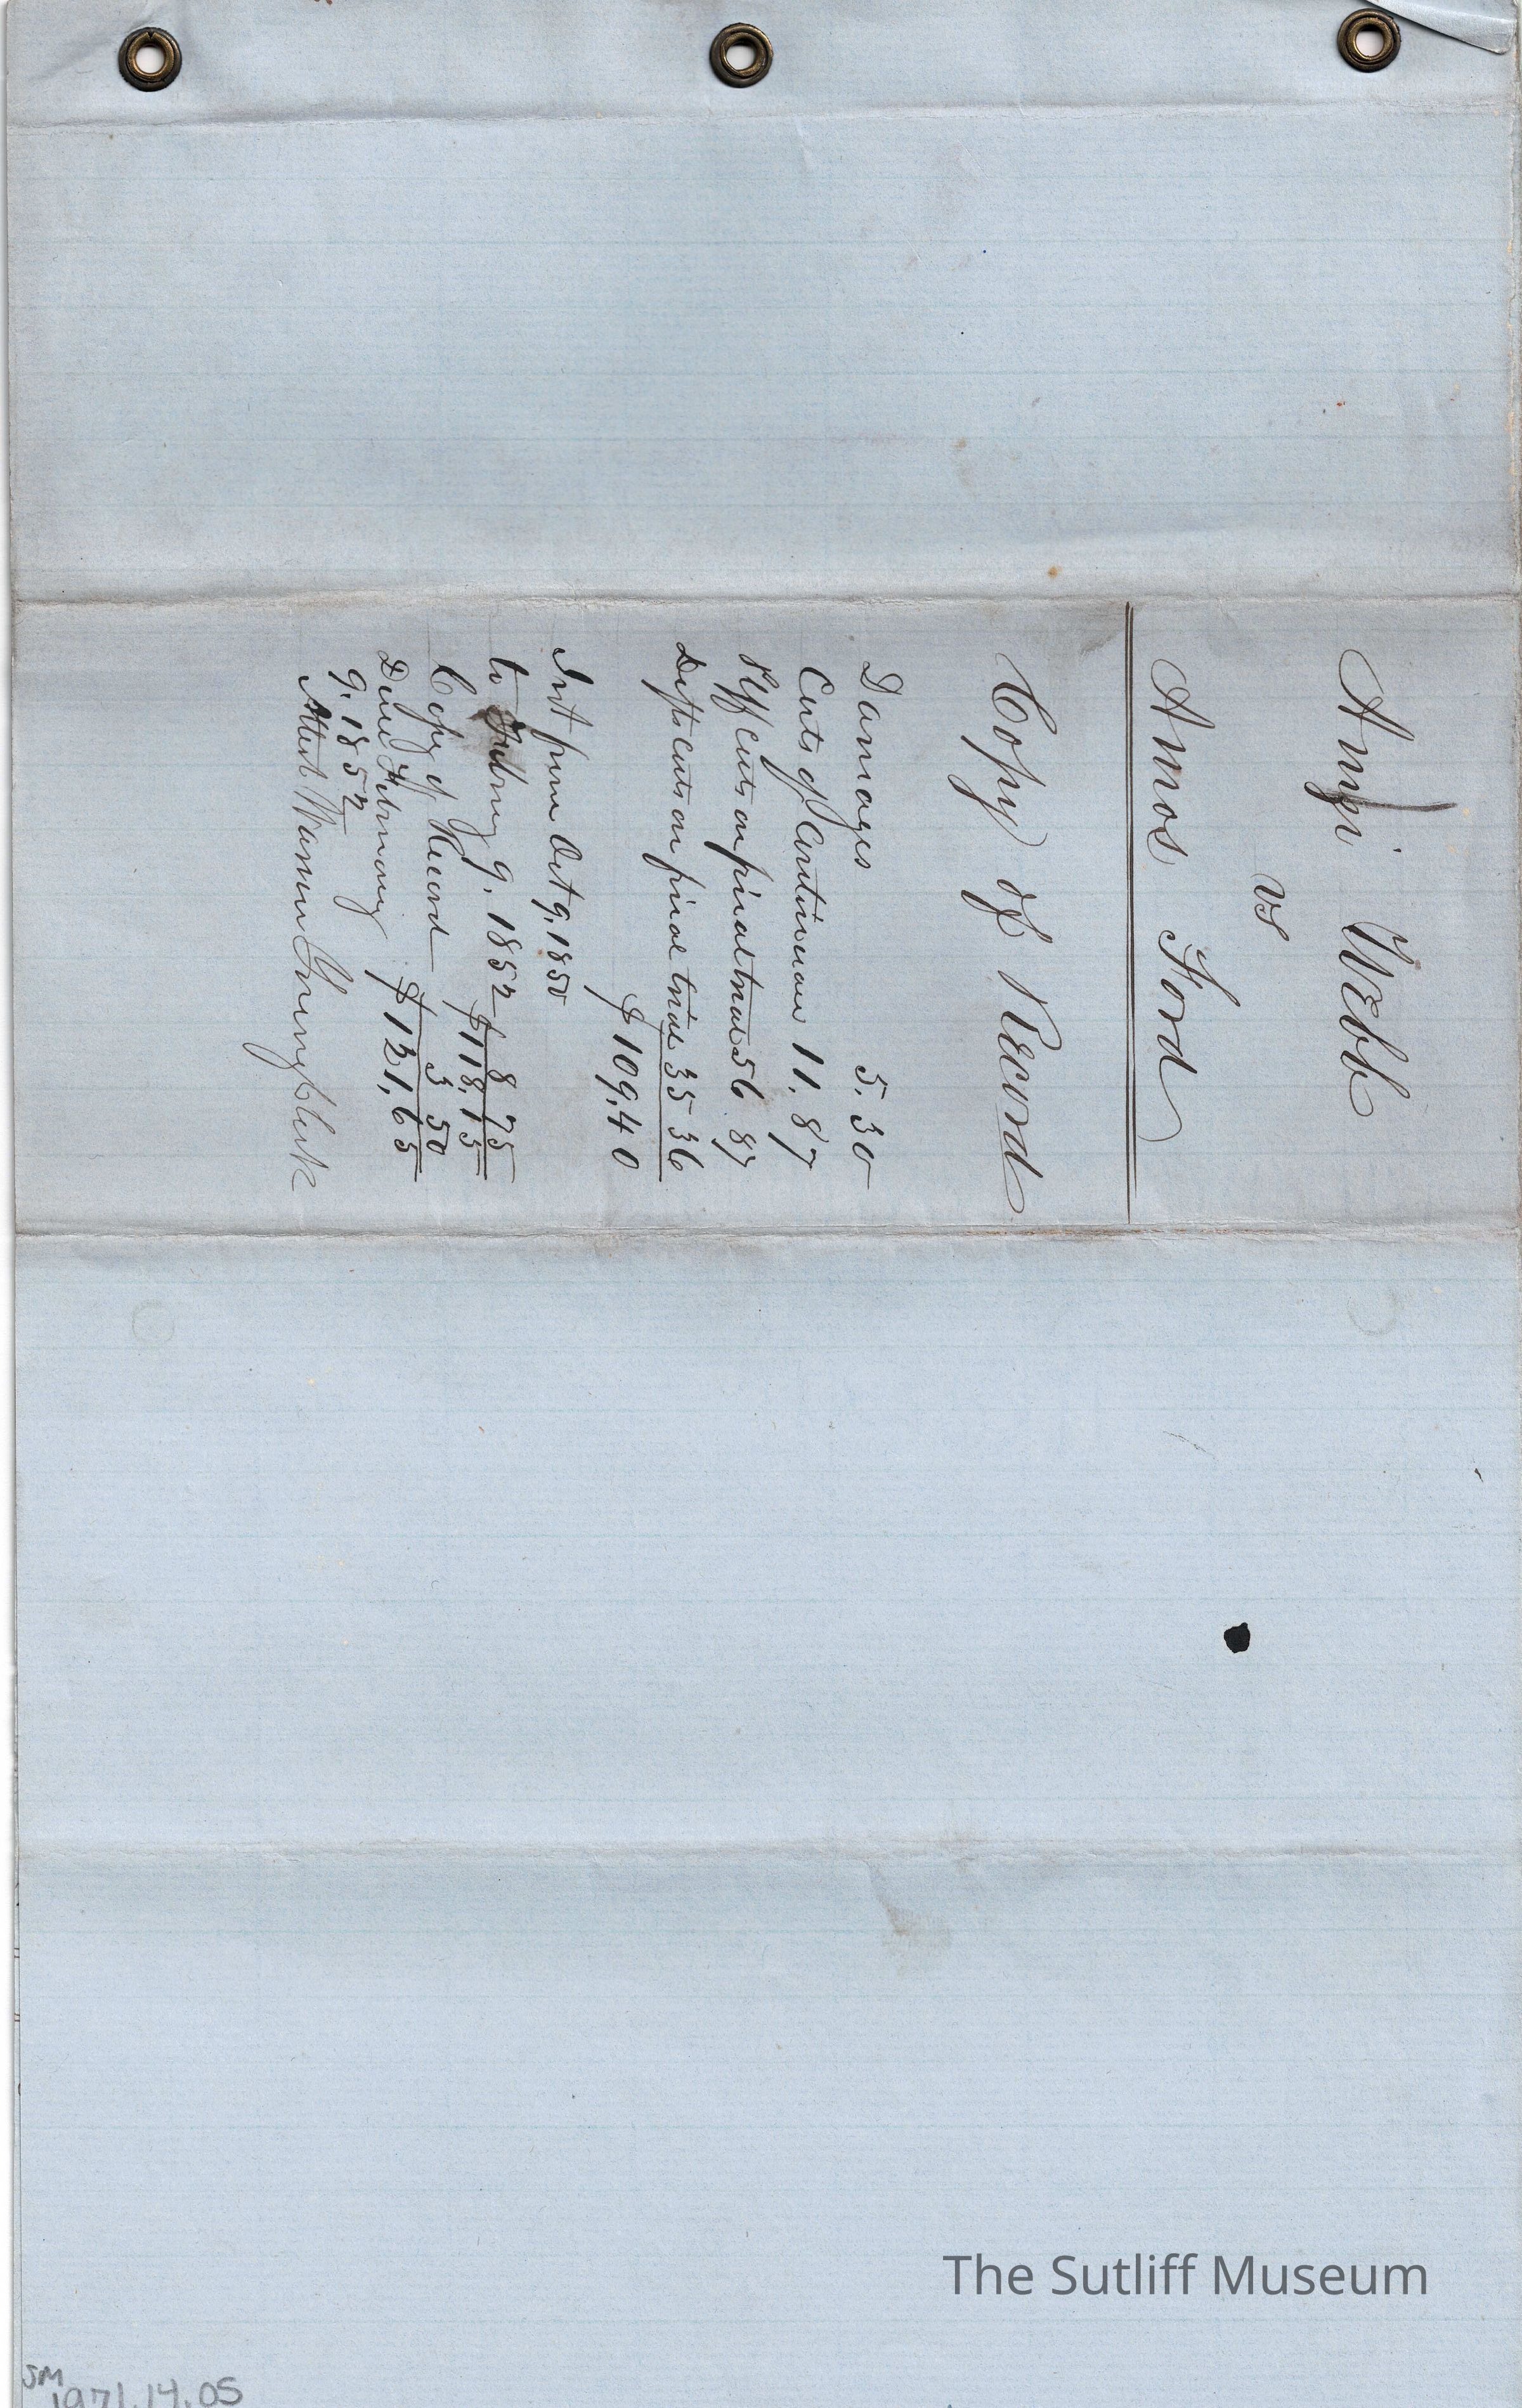 Ampi Webb
vs
Amos Ford
Copy of Record
Damages 5.30
Costs of Continuan 11.87
Plff costs on final trial 56 87
Defts costs on final trial 35 36
$109.40
Int from Oct 9, 1850
to Febru 9. 1852 8 75
$118,15
Copy of Record 3 50
Due February $121,65
9. 1852
Attest Warren Young Clerk
The Sutliff Museum
SM
1971.14.05